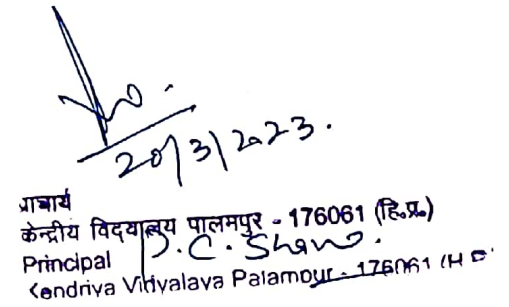 20/3/2023.
प्राचार्य
केन्द्रीय विद्यालय पालमपुर - 176061 (हि.प्र.)
Principal
Kendriya Vidyalaya Palampur - 176061 (H